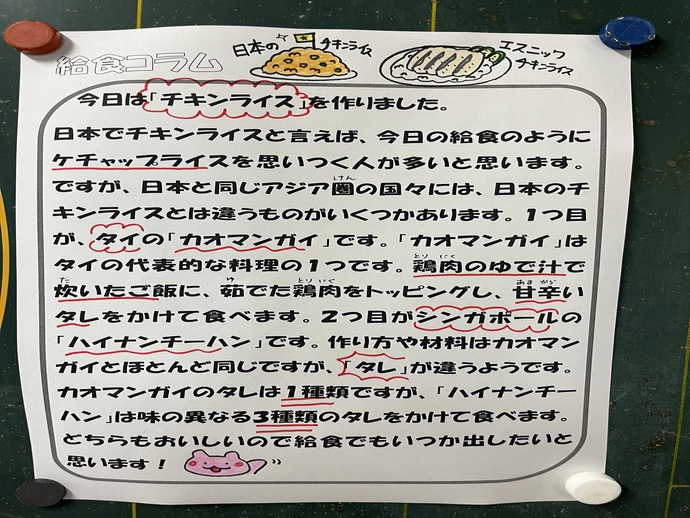 給食コラム
日本の
チキンライス
エスニック
チキンライス
今日は「チキンライス」を作りました。
日本でチキンライスと言えば、今日の給食のように
ケチャップライスを思いつく人が多いと思います。
ですが、日本と同じアジア圏の国々には、日本のチ
キンライスとは違うものがいくつかあります。1つ目
が、タイの「カオマンガイ」です。「カオマンガイ」は
タイの代表的な料理の1つです。鶏肉のゆで汁で
炊いたご飯に、茹でた鶏肉をトッピングし、甘辛い
タレをかけて食べます。2つ目がシンガポールの
「ハイナンチーハン」です。作り方や材料はカオマン
ガイとほとんど同じですが、「タレ」が違うようです。
カオマンガイのタレは1種類ですが、「ハイナンチー
ハン」は味の異なる3種類のタレをかけて食べます。
どちらもおいしいので給食でもいつか出したいと
思います！